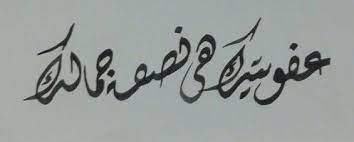 عفويتك هى نصف جمالك